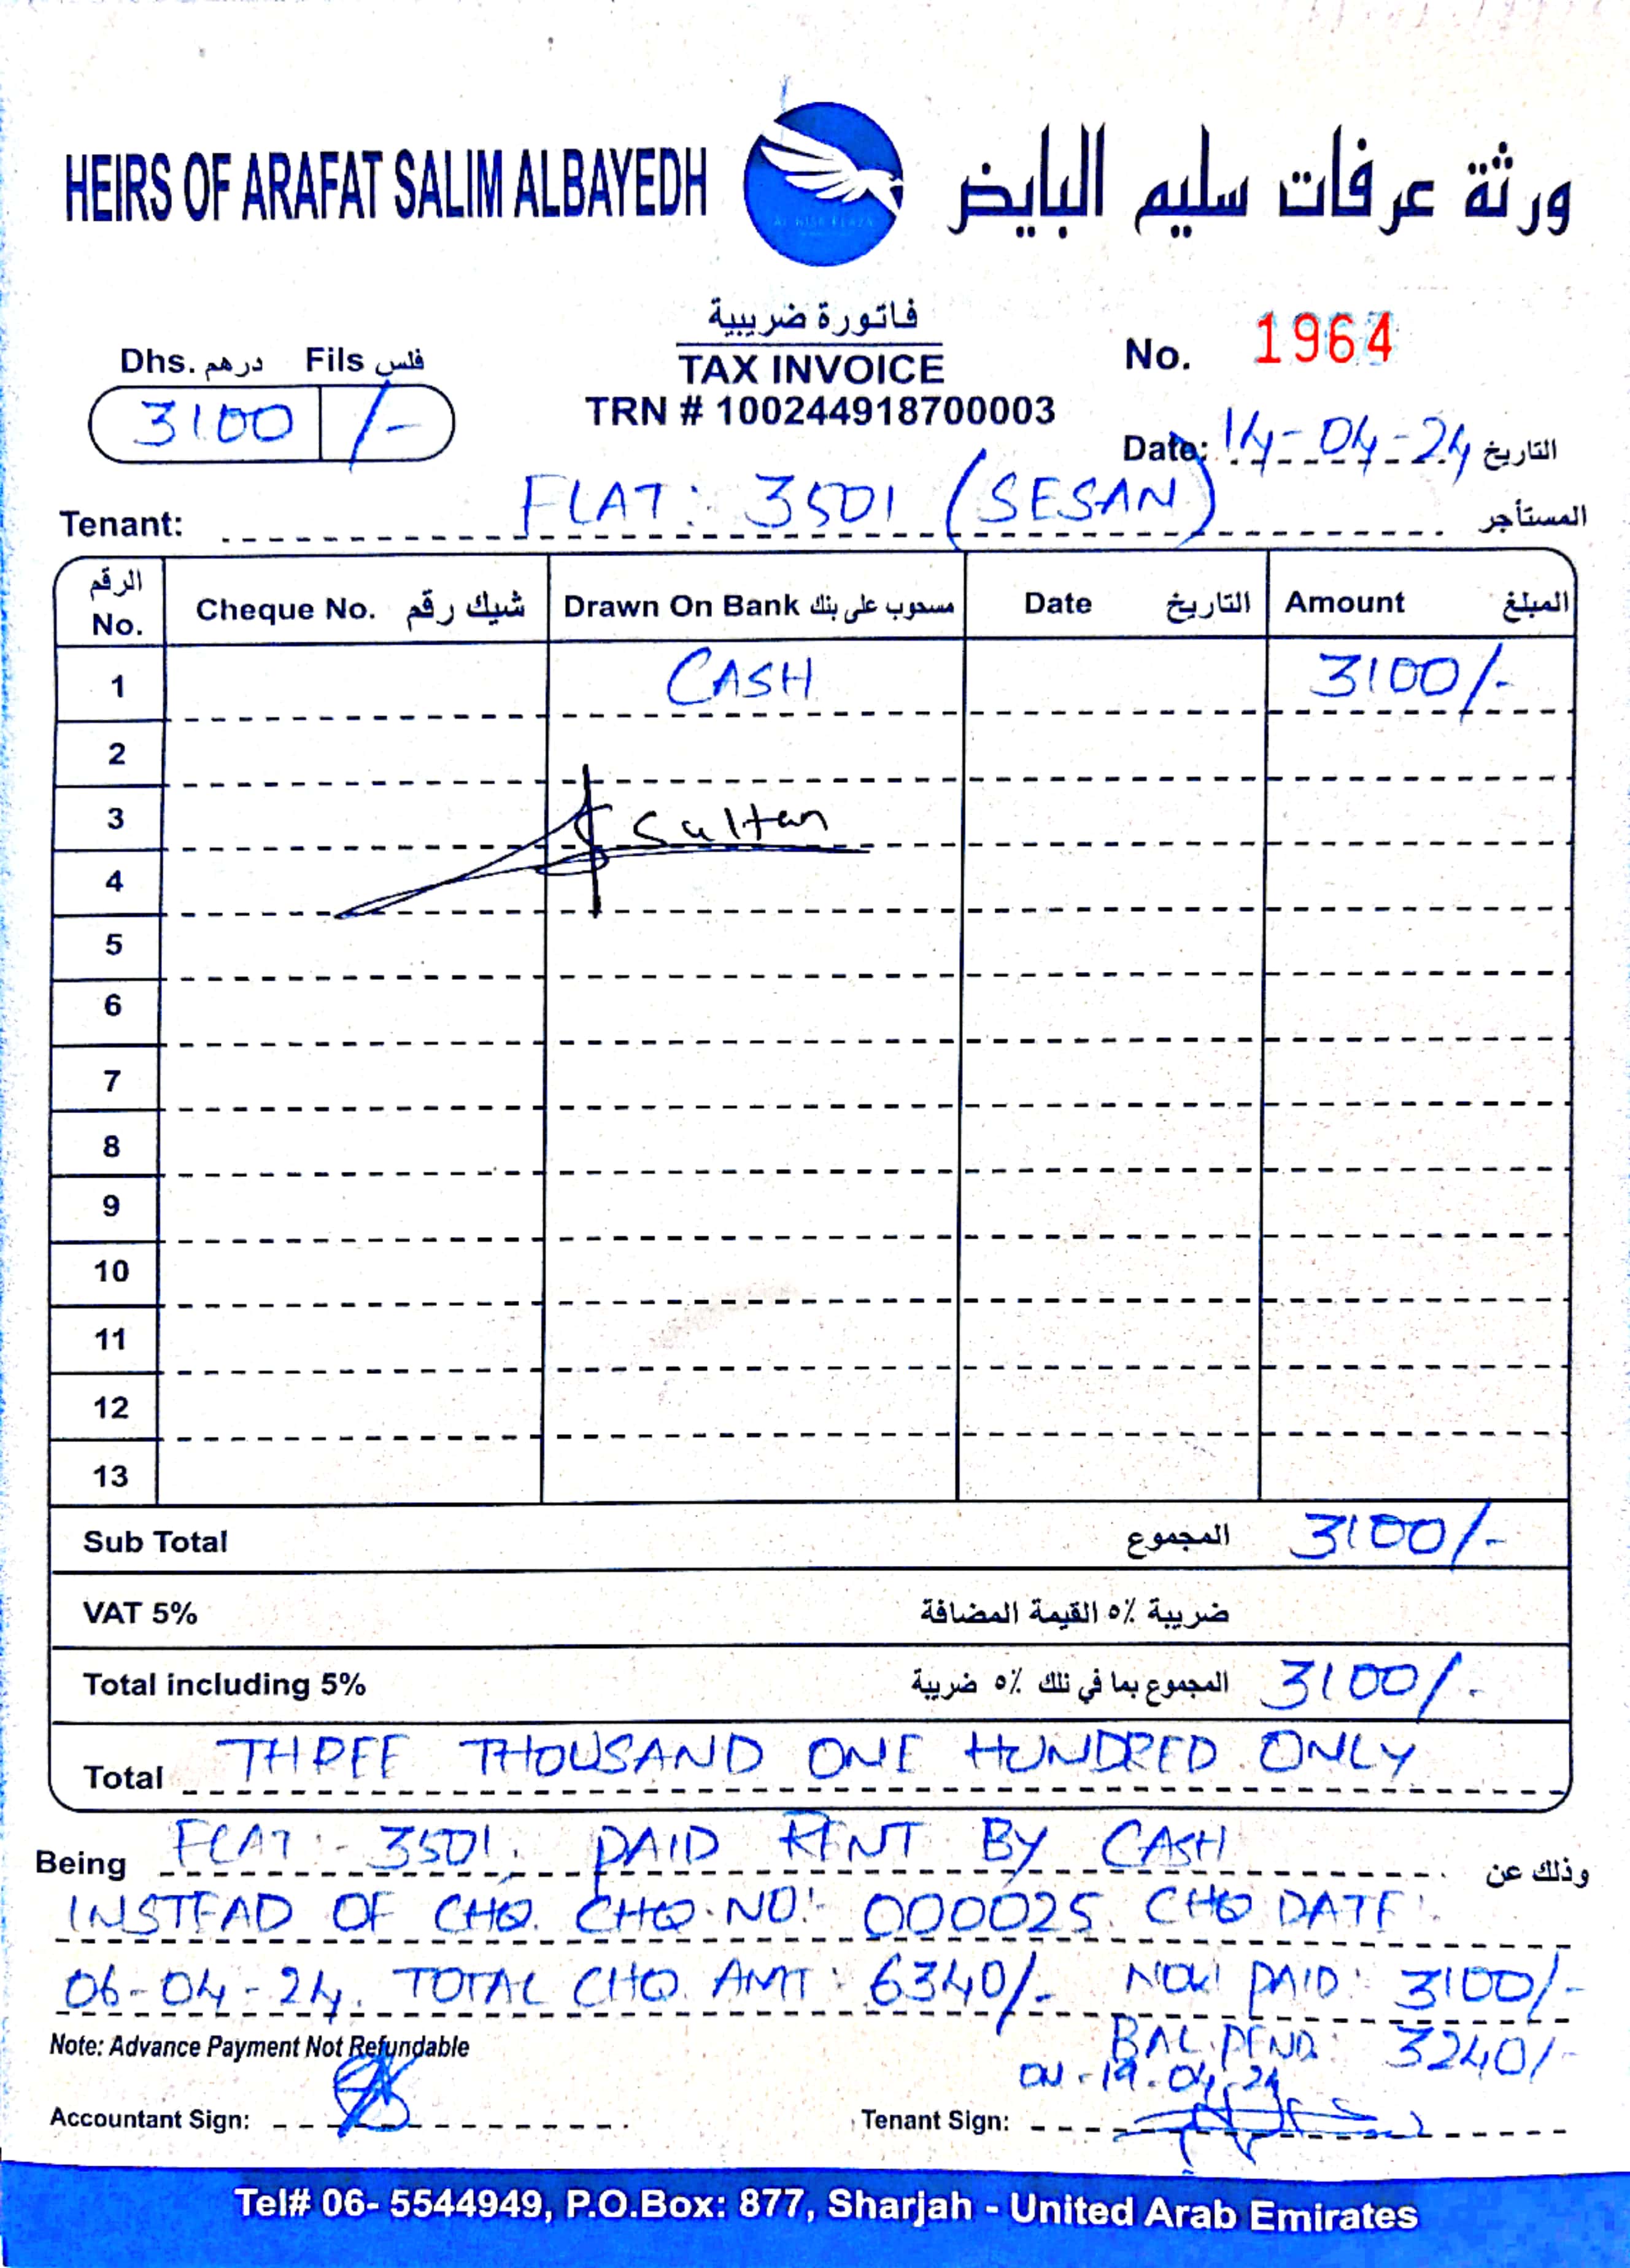 HEIRS OF ARAFAT SALIM ALBAYEDH
ورثة عرفات سليم البايض
فاتورة ضريبية
TAX INVOICE
TRN # 100244918700003
Dhs. درهم Fils فلس
3100 /-
No. 1964
Date: 14-04-24 التاريخ
Tenant: FLAT: 3501 (SESAN) المستأجر
الرقم No. Cheque No. شيك رقم Drawn On Bank مسحوب على بنك Date التاريخ Amount المبلغ
1 CASH 3100/-
2
3 Sultan
4
5
6
7
8
9
10
11
12
13
Sub Total المجموع 3100/-
VAT 5% ضريبة ٥٪ القيمة المضافة
Total including 5% المجموع بما في ذلك ٥٪ ضريبة 3100/-
Total THREE THOUSAND ONE HUNDRED ONLY
Being FLAT:- 3501. PAID RENT BY CASH وذلك عن
INSTEAD OF CHQ. CHQ.NO:- 000025. CHQ DATE:
06-04-24. TOTAL CHQ. AMT: 6340/- NOW PAID: 3100/-
Note: Advance Payment Not Refundable BAL.PEND: 3240/-
ON-19-04-24
Accountant Sign: Tenant Sign:
Tel# 06- 5544949, P.O.Box: 877, Sharjah - United Arab Emirates